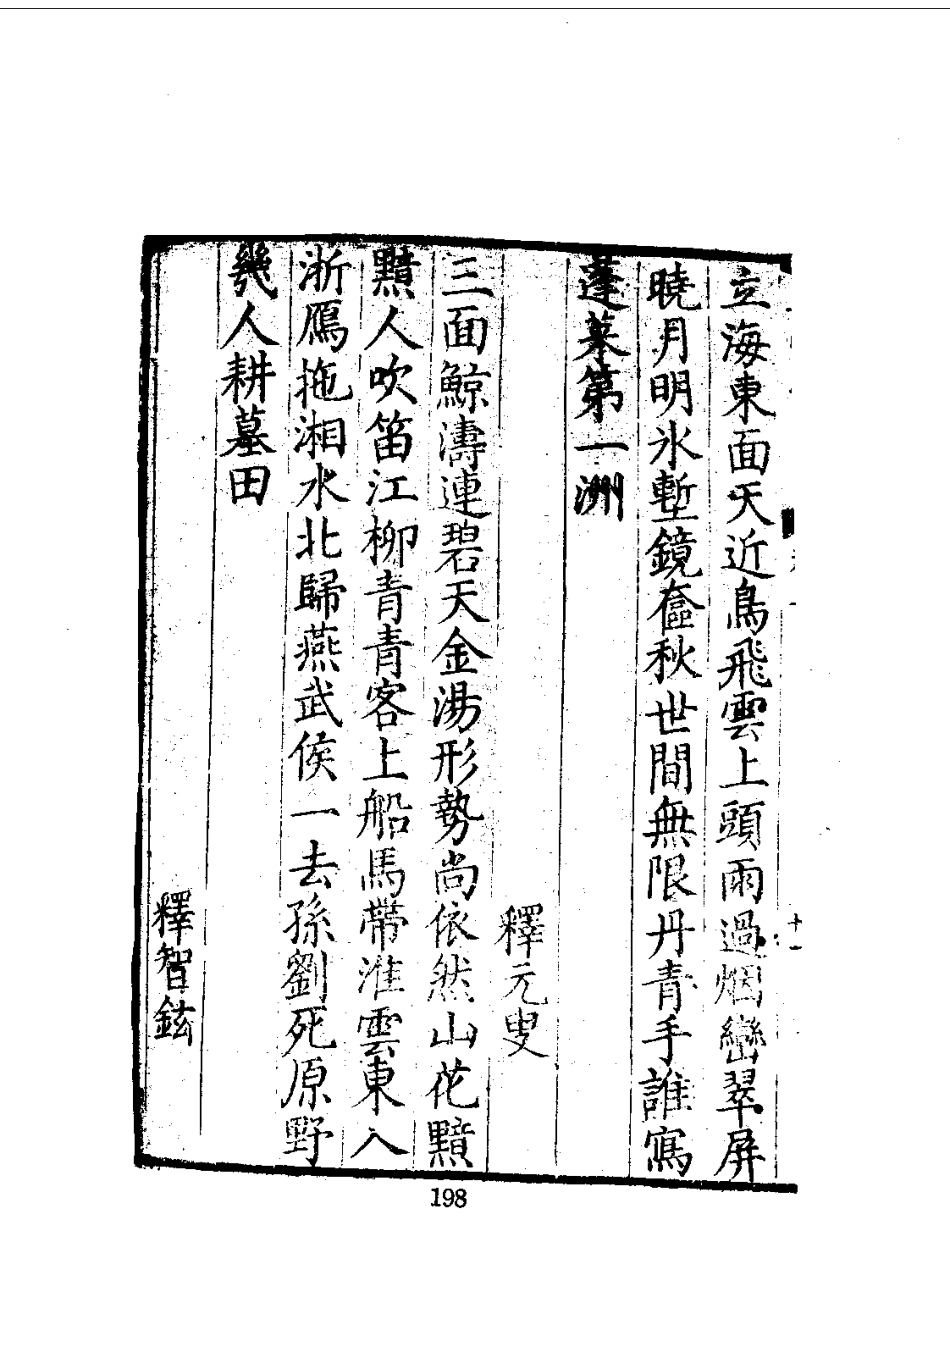 立海東面天近鳥飛雲上頭雨過烟巒翠屏
曉月明氷塹鏡奩秋世間無限丹青手誰寫
蓬萊第一洲
釋元叟
三面鯨濤連碧天金湯形勢尚依然山花黯
黯人吹笛江柳青青客上船馬帶淮雲東入
浙鴈拖湘水北歸燕武侯一去孫劉死原野
幾人耕墓田
釋智鉉
十一
198